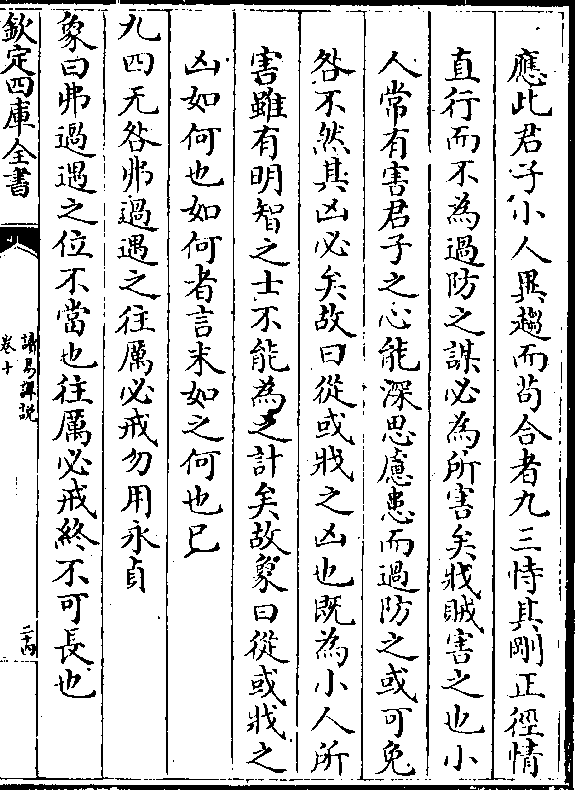 應此君子小人異趨而茍合者九三恃其剛正徑情
直行而不為過防之謀必為所害矣戕賊害之也小
人常有害君子之心能深思慮患而過防之或可免
咎不然其凶必矣故曰從或戕之凶也既為小人所
害雖有明智之士不能為之計矣故象曰從或戕之
凶如何也如何者言末如之何也已
九四无咎弗過遇之往厲必戒勿用永貞
象曰弗過遇之位不當也往厲必戒終不可長也
欽定四庫全書
讀易詳說
卷十
二十四